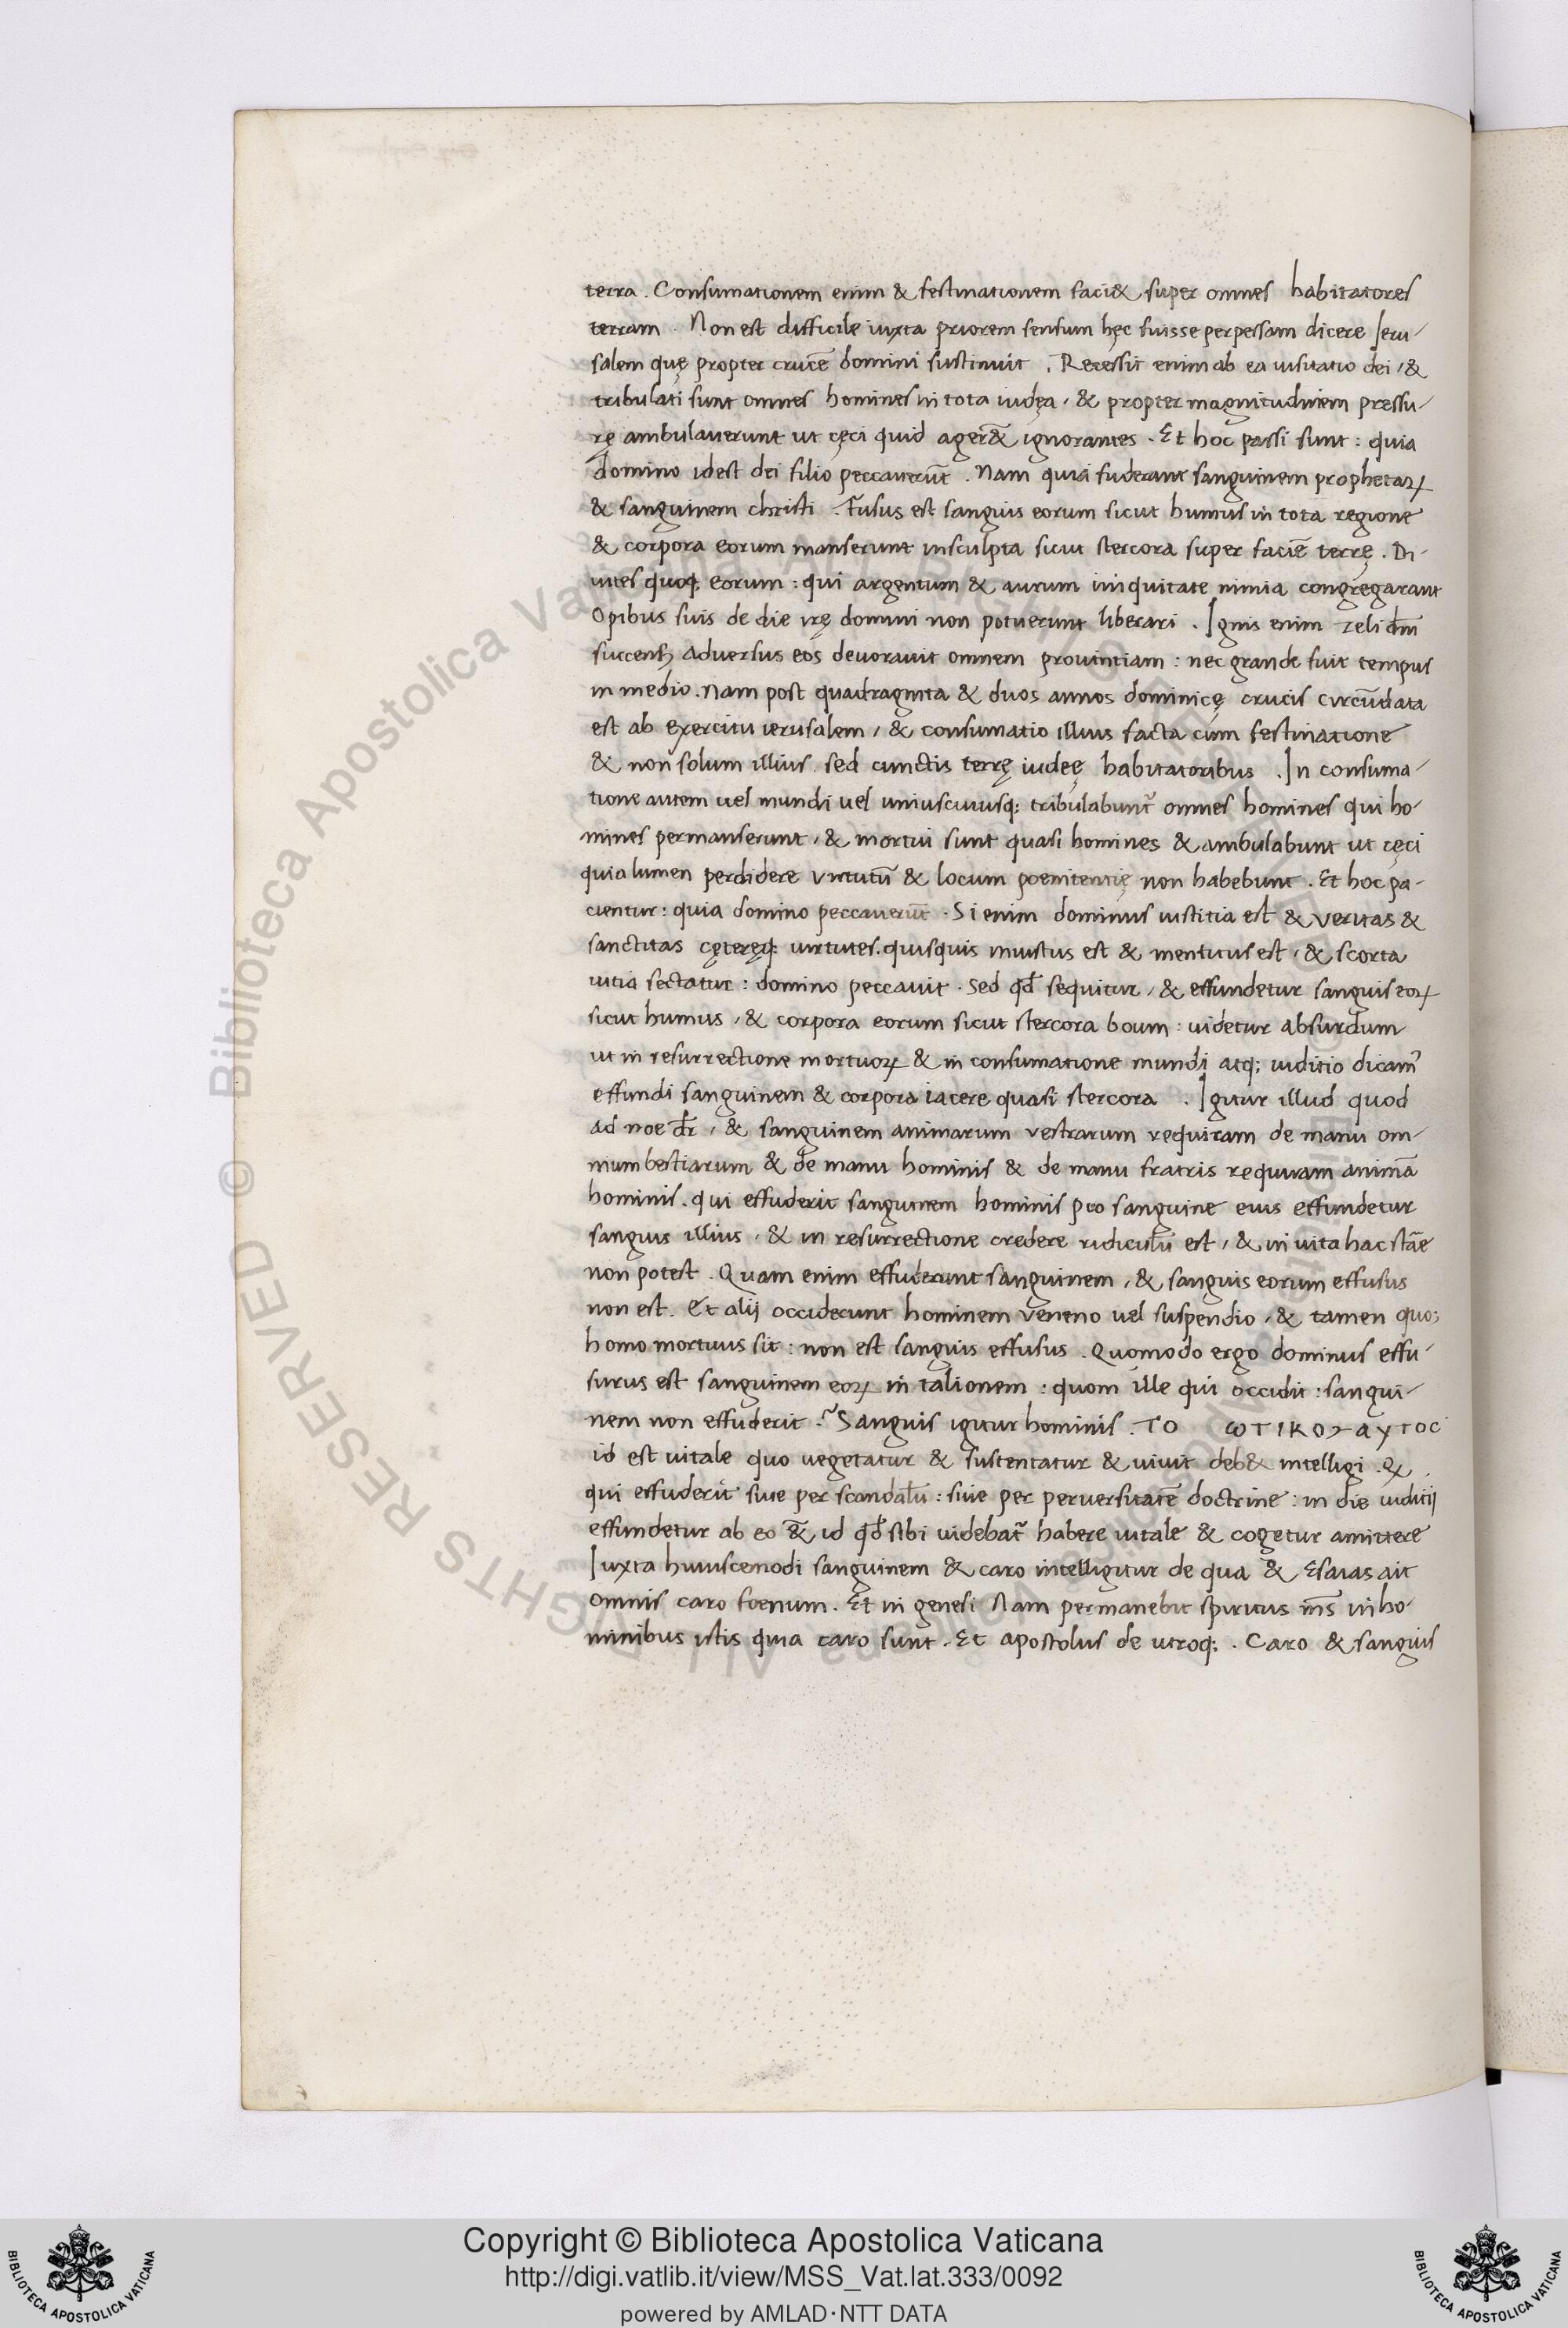 terra. Consumationem enim & festinationem faci& super omnes habitatores
terram. Non est difficile iuxta priorem sensum hęc fuisse perpessam dicere Ieru-
salem quę propter crucē domini sustinuit. Recessit enim ab ea uisitatio dei, &
tribulati sunt omnes homines in tota iudęa, & propter magnitudinem pressu-
rę ambulauerunt ut cęci quid ager& ignorantes. Et hoc passi sunt: quia
domino idest dei filio peccauerūt. Nam quia fuderant sanguinem prophetaꝝ
& sanguinem christi. Fusus est sanguis eorum sicut humus in tota regione
& corpora eorum manserunt insculpta sicut stercora super faciē terrę. Di-
uites quoq; eorum: qui argentum & aurum iniquitate nimia congregarant
Opibus suis de die irę domini non potuerunt liberari. Ignis enim zeli dm̄
succens, aduersus eos deuorauit omnem prouintiam: nec grande fuit tempus
in medio. Nam post quadraginta & duos annos dominicę crucis circūdata
est ab exercitu ierusalem, & consumatio illius facta cum festinatione
& non solum illius. sed cunctis terrę iudeę habitatoribus. In consuma-
tione autem uel mundi uel uniuscuiusq; tribulabunt̄ omnes homines qui ho-
mines permanserunt, & mortui sunt quasi homines & ambulabunt ut cęci
quia lumen perdidere uirtutū & locum poenitentię non habebunt. Et hoc pa-
cientur: quia domino peccauerūt. Si enim dominus iustitia est & veritas &
sanctitas cęteręq; uirtutes. quisquis iniustus est & mentitus est, & scorta
uitia sectatur: domino peccauit. Sed qd̄ sequitur, & effundetur sanguis eoꝝ
sicut humus, & corpora eorum sicut stercora boum: uidetur absurdum
ut in resurrectione mortuoꝝ & in consumatione mundi atq; iuditio dicam'
effundi sanguinem & corpora iacere quasi stercora. Igitur illud quod
ad noe dr̄, & sanguinem animarum vestrarum requiram de manu om-
nium bestiarum & de manu hominis & de manu fratris requiram animā
hominis. qui effuderit sanguinem hominis pro sanguine eius effundetur
sanguis illius, & in resurrectione credere ridiculū est, & in uita hac stāe
non potest. Quam enim effuderunt sanguinem, & sanguis eorum effusus
non est. Et alij occiderunt hominem veneno uel suspendio, & tamen quo;
homo mortuus sit: non est sanguis effusus. Quomodo ergo dominus effu-
surus est sanguinem eoꝝ in talionem: quom ille qui occidit: sangui-
nem non effuderit. Sanguis igitur hominis. ΤΟ ωΤΙΚΟΝ αΥΤΟC
id est uitale quo uegetatur & sustentatur & uiuit deb& intelligi. Qꝝ
qui effuderit siue per scandalū: siue per peruersitatē doctrine: in die iuditij
effundetur ab eo & id qd̄ sibi uidebat̄ habere uitale & cogetur amittere
Iuxta huiuscemodi sanguinem & caro intelligitur de qua & Esaias ait
Omnis caro foenum. Et in genesi Nam permanebit spiritus ms̄ in ho-
minibus istis quia caro sunt. Et apostolus de utroq;. Caro & sanguis
© Biblioteca Apostolica Vaticana ALL RIGHTS RESERVED
Copyright © Biblioteca Apostolica Vaticana
http://digi.vatlib.it/view/MSS_Vat.lat.333/0092
powered by AMLAD·NTT DATA
BIBLIOTECA APOSTOLICA VATICANA
BIBLIOTECA APOSTOLICA VATICANA